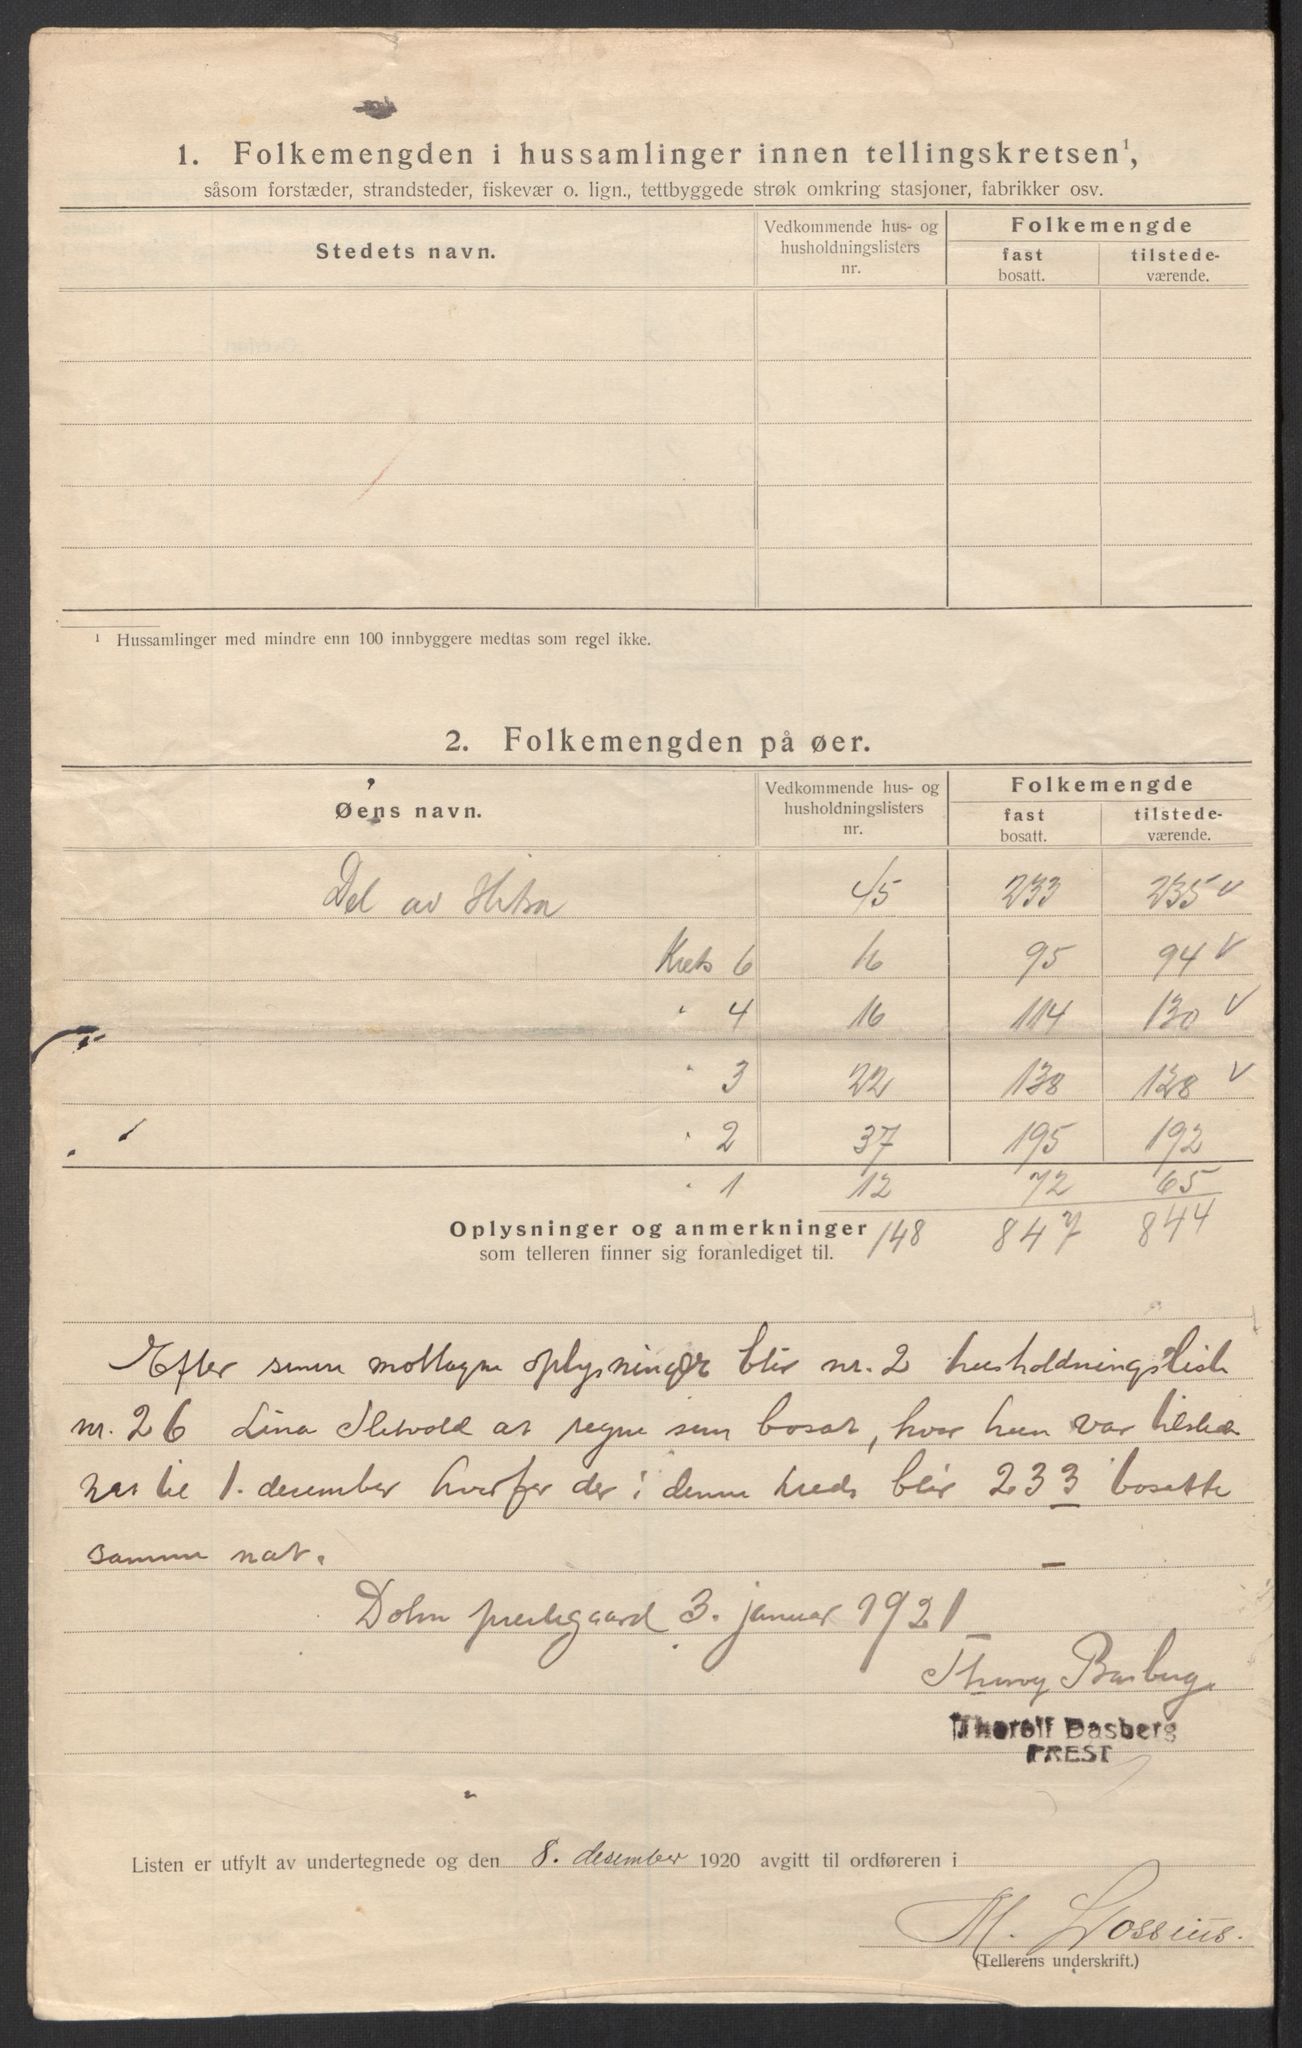 1. Folkemengden i hussamlinger innen tellingskretsen¹,
såsom forstæder, strandsteder, fiskevær o. lign., tettbyggede strøk omkring stasjoner, fabrikker osv.
Stedets navn.
Vedkommende hus- og husholdningslisters nr.
Folkemengde
fast bosatt.
tilstede-værende.
¹ Hussamlinger med mindre enn 100 innbyggere medtas som regel ikke.
2. Folkemengden på øer.
Øens navn.
Vedkommende hus- og husholdningslisters nr.
Folkemengde
fast bosatt.
tilstede-værende.
Del av Hitra 45 233 235 v
Krets 6 16 95 94 v
" 4 16 114 130 v
" 3 22 138 128 v
" 2 37 195 192
" 1 12 72 65
148 847 844
Oplysninger og anmerkninger
som telleren finner sig foranlediget til.
Efter mottagne oplysninger blir nr. 2 husholdningsliste
nr. 26 Lina at regne som bosat, hvor hun var tilstede
nat til 1. desember hvorfor der i denne kreds blir 233 bosatte
samme nat.
Dolm prestegaard 3. januar 1921
Thoralf Basberg
PREST
Listen er utfylt av undertegnede og den 8. desember 1920 avgitt til ordføreren i
M. Lossius.
(Tellerens underskrift.)